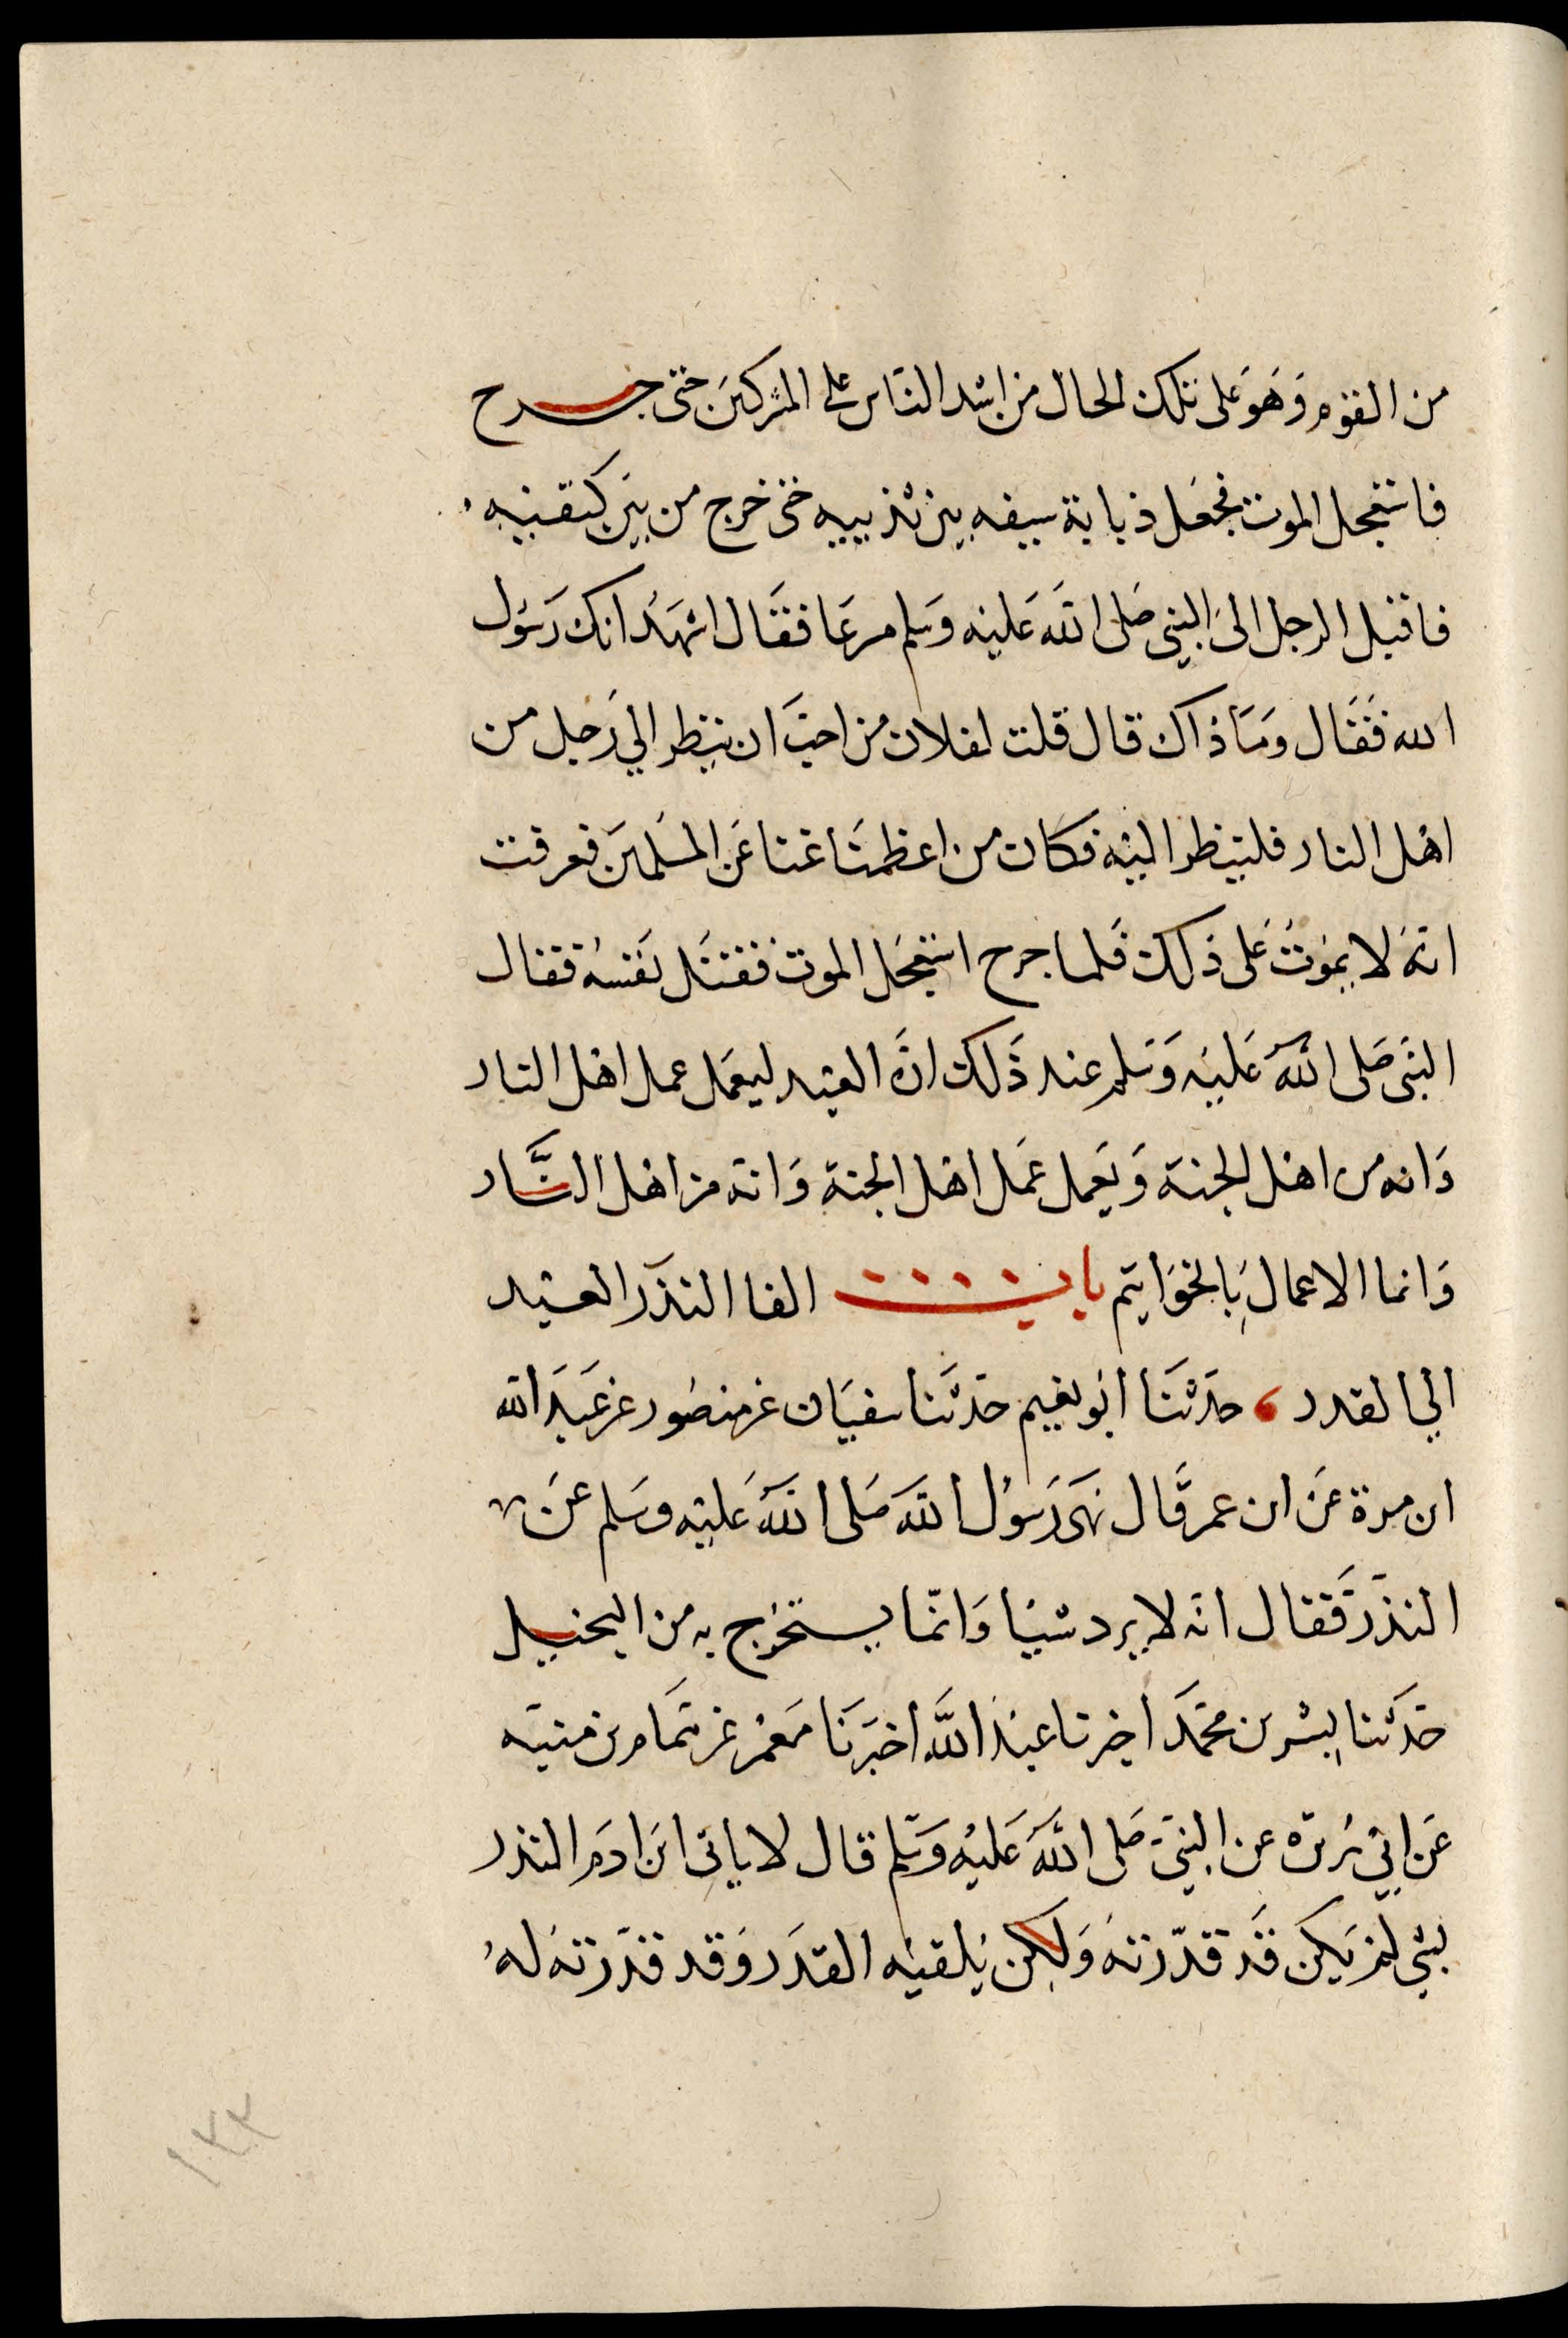 من القوم وهو على تلك الحال من اشد الناس على المشركين حتى جرح
فاستعجل الموت فجعل ذبابة سيفه بين ثدييه حتى خرج من بين كتفيه
فاقبل الرجل الى النبي صلى الله عليه وسلم مسرعا فقال اشهد انك رسول
الله فقال وما ذاك قال قلت لفلان من احب ان ينظر الي رجل من
اهل النار فلينظر اليه فكان من اعظمنا غنا عن المسلمين فعرفت
انه لا يموت على ذلك فلما جرح استعجل الموت فقتل نفسه فقال
النبي صلى الله عليه وسلم عند ذلك ان العبد ليعمل عمل اهل النار
وانه من اهل الجنة ويعمل عمل اهل الجنة وانه من اهل النار
وانما الاعمال بالخواتيم باب القا النذر العبد
الي القدر حدثنا ابو نعيم حدثنا سفيان عن منصور عن عبد الله
ابن مرة عن ابن عمر قال نهى رسول الله صلى الله عليه وسلم عن
النذر فقال انه لا يرد شيا وانما يستخرج به من البخيل
حدثنا بشر بن محمد اخبرنا عبد الله اخبرنا معمر عن همام بن منبه
عن ابي هريرة عن النبي صلى الله عليه وسلم قال لا ياتي ابن ادم النذر
بشي لم يكن قد قدرته ولكن يلقيه القدر وقد قدرته له
١٢٢